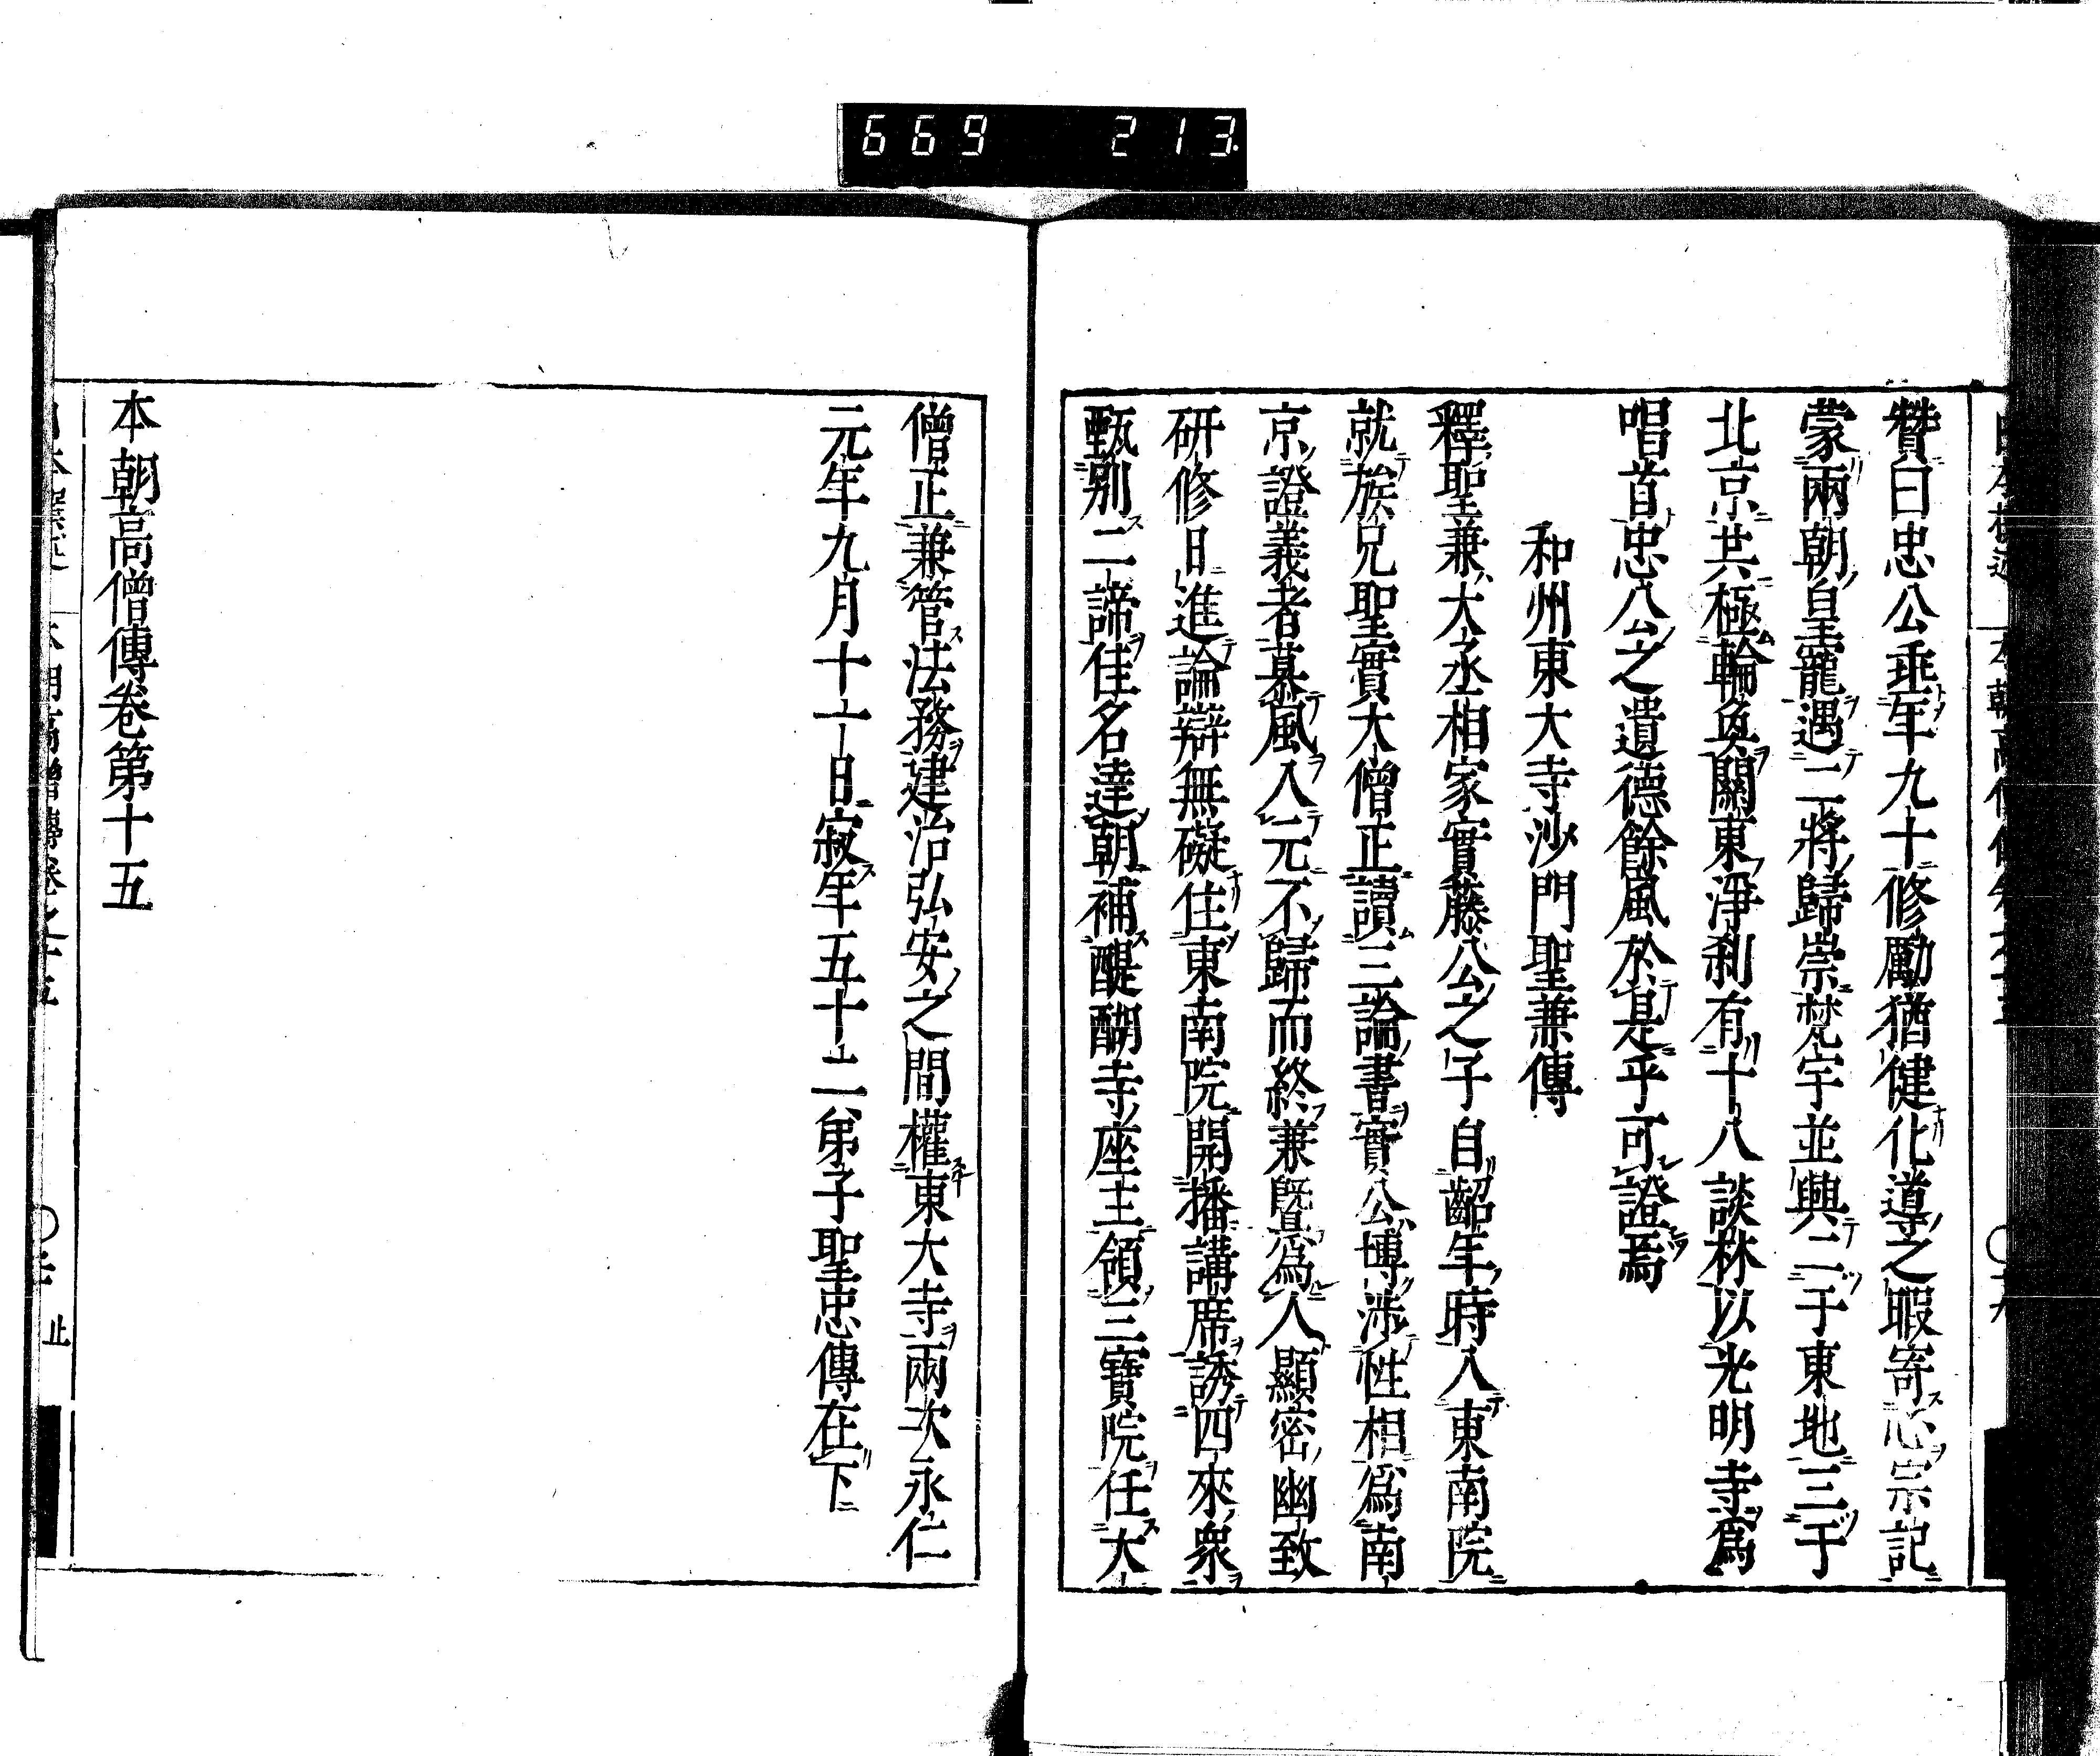 669 213
贊曰忠公垂年九十修勵猶健化導之暇寄心宗記
蒙兩朝皇寵遇二將歸崇梵宇並興二于東地三于
北京共極輪奐關東淨刹有十八談林以光明寺爲
唱首忠公之遺德餘風於是乎可證焉
和州東大寺沙門聖兼傳
釋聖兼大丞相家實藤公之子自齠年時入東南院
就族兄聖實大僧正讀三論書實公博涉性相爲南
京證義者慕風入元不歸而終兼曁爲人顯密幽致
研修日進論辯無礙住東南院開播講席誘四來衆
甄別二諦佳名達朝補醍醐寺座主領三寶院任大
僧正兼管法務建治弘安之間權東大寺兩次永仁
元年九月十一日寂年五十二弟子聖忠傳在下
本朝高僧傳卷第十五
止